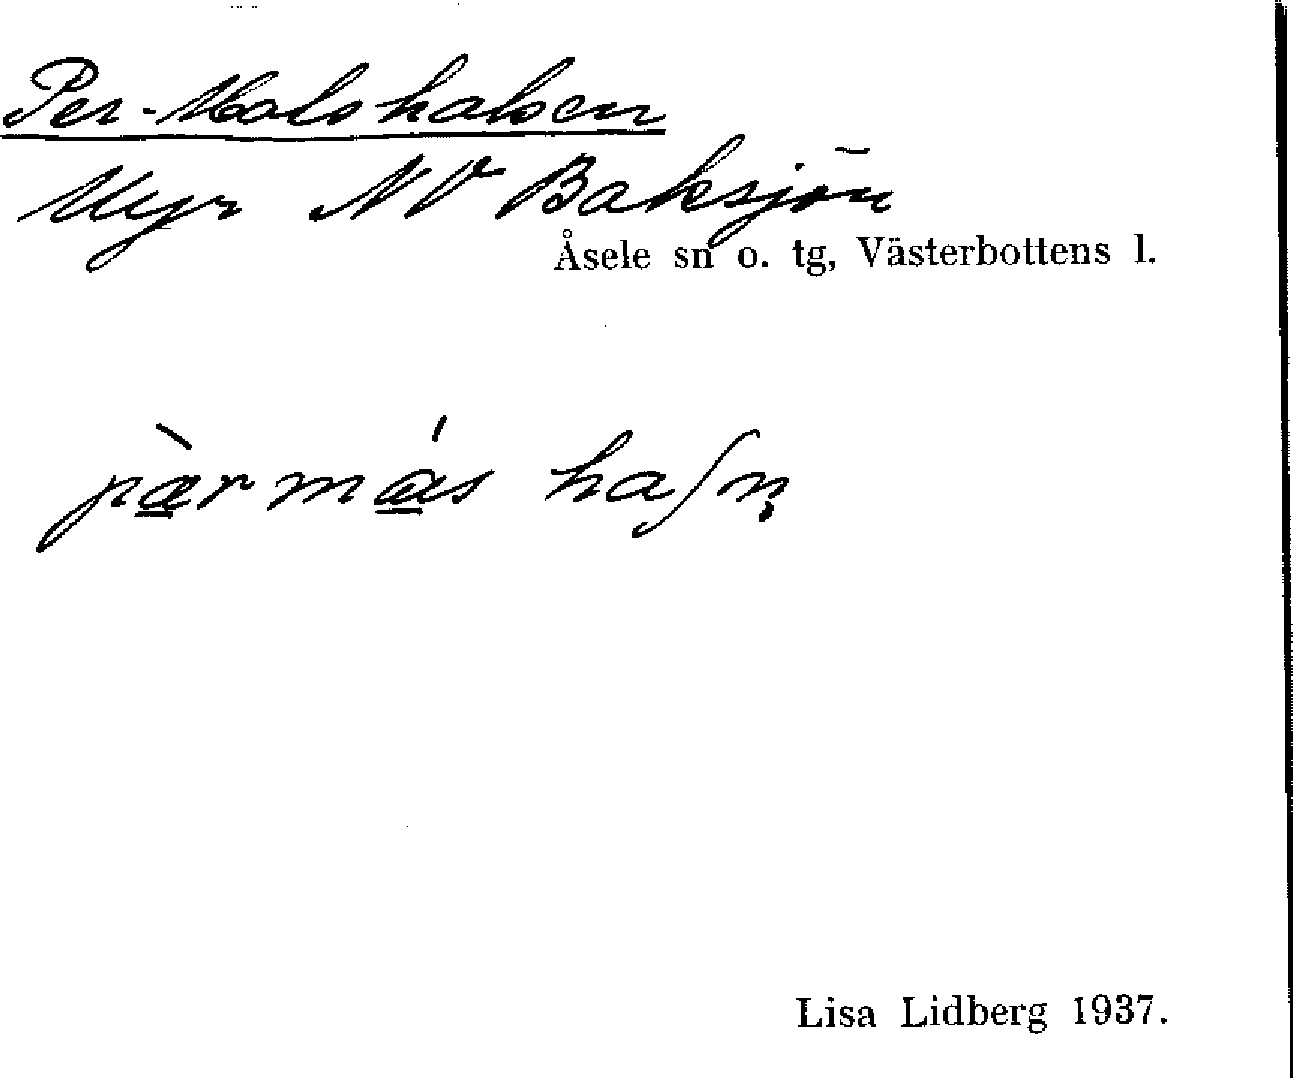 Per-Malshalsen
Myr NV Baksjön
Åsele sn o. tg, Västerbottens l.
pæ̀rmás haʃn̥
Lisa Lidberg 1937.